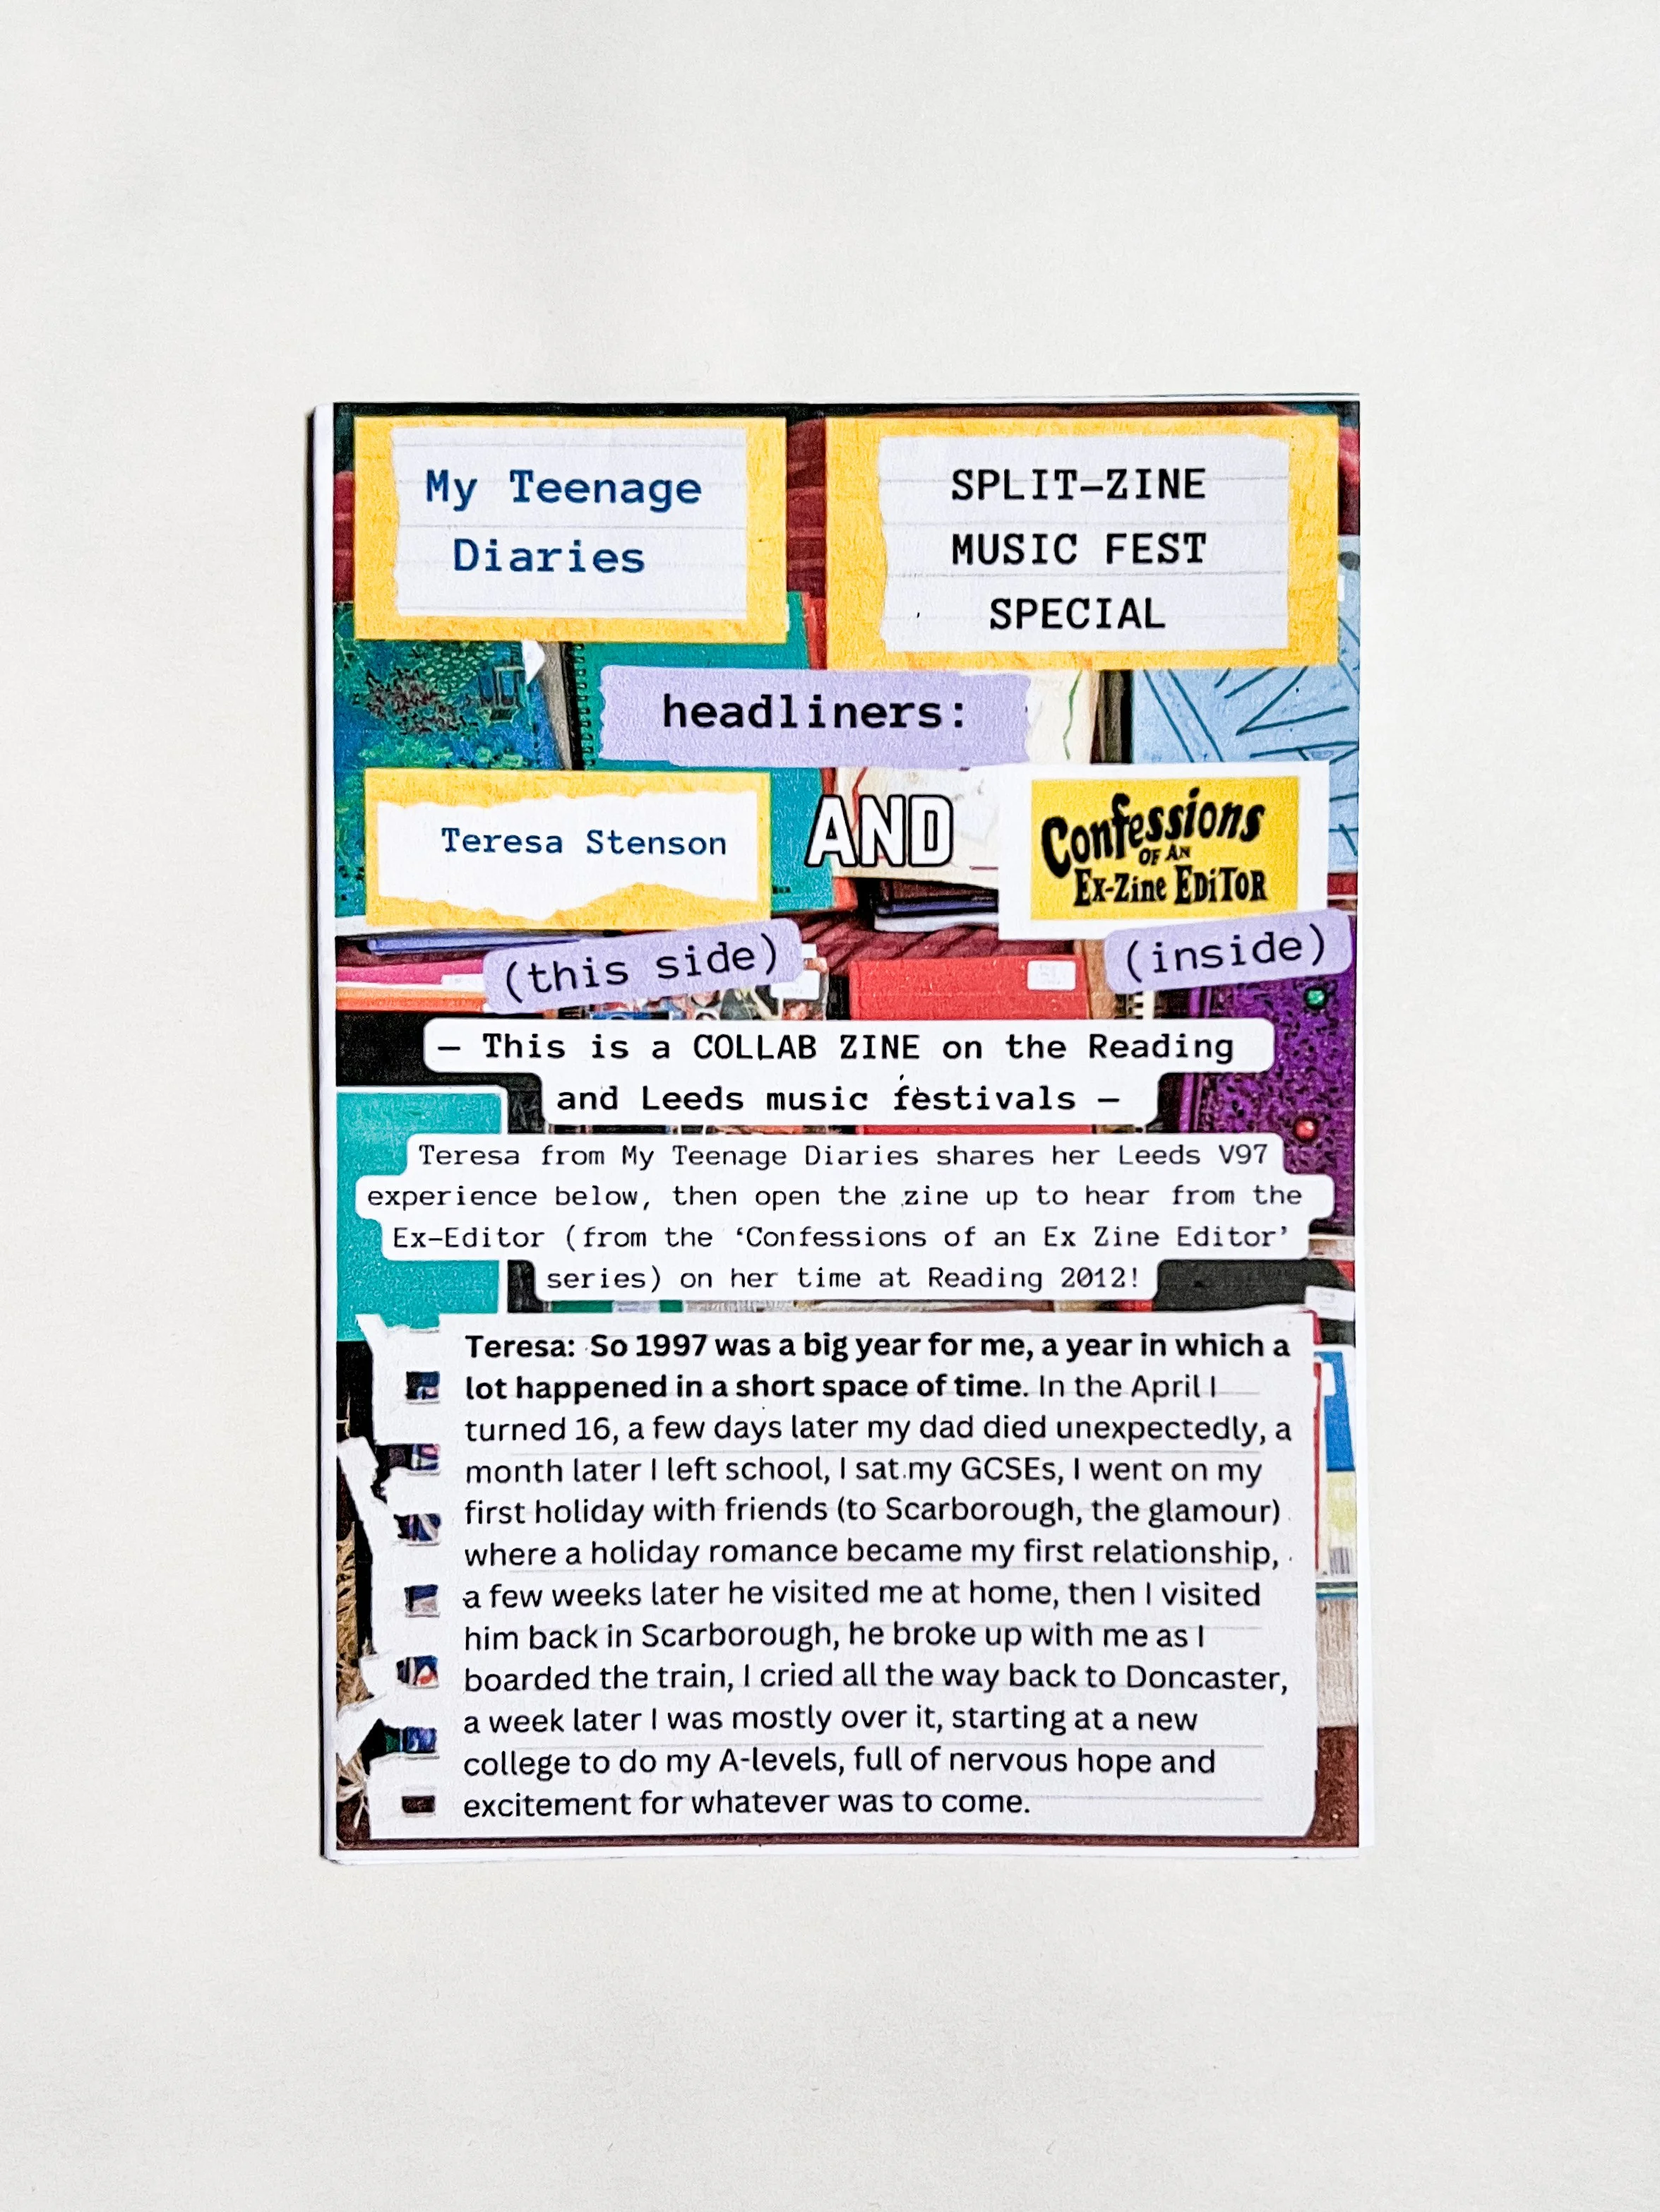 My Teenage
Diaries
SPLIT–ZINE
MUSIC FEST
SPECIAL
headliners:
Teresa Stenson
AND
Confessions
OF AN
Ex-Zine EDiTOR
(this side)
(inside)
– This is a COLLAB ZINE on the Reading
and Leeds music festivals –
Teresa from My Teenage Diaries shares her Leeds V97
experience below, then open the zine up to hear from the
Ex–Editor (from the ‘Confessions of an Ex Zine Editor’
series) on her time at Reading 2012!
Teresa: So 1997 was a big year for me, a year in which a
lot happened in a short space of time. In the April I
turned 16, a few days later my dad died unexpectedly, a
month later I left school, I sat my GCSEs, I went on my
first holiday with friends (to Scarborough, the glamour)
where a holiday romance became my first relationship,
a few weeks later he visited me at home, then I visited
him back in Scarborough, he broke up with me as I
boarded the train, I cried all the way back to Doncaster,
a week later I was mostly over it, starting at a new
college to do my A-levels, full of nervous hope and
excitement for whatever was to come.